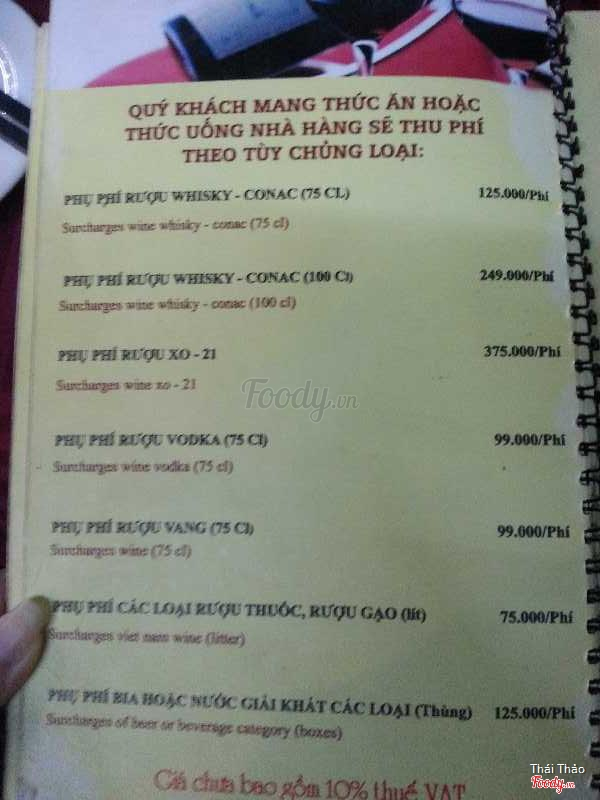 QUÝ KHÁCH MANG THỨC ĂN HOẶC
THỨC UỐNG NHÀ HÀNG SẼ THU PHÍ
THEO TÙY CHỦNG LOẠI:
PHỤ PHÍ RƯỢU WHISKY - CONAC (75 CL) 125.000/Phí
Surcharges wine whisky - conac (75 cl)
PHỤ PHÍ RƯỢU WHISKY - CONAC (100 Cl) 249.000/Phí
Surcharges wine whisky - conac (100 cl)
PHỤ PHÍ RƯỢU XO - 21 375.000/Phí
Surcharges wine xo - 21
Foody.vn
PHỤ PHÍ RƯỢU VODKA (75 Cl) 99.000/Phí
Surcharges wine vodka (75 cl)
PHỤ PHÍ RƯỢU VANG (75 Cl) 99.000/Phí
Surcharges wine (75 cl)
PHỤ PHÍ CÁC LOẠI RƯỢU THUỐC, RƯỢU GẠO (lít) 75.000/Phí
Surcharges viet nam wine (litter)
PHỤ PHÍ BIA HOẶC NƯỚC GIẢI KHÁT CÁC LOẠI (Thùng) 125.000/Phí
Surcharges of beer or beverage category (boxes)
Giá chưa bao gồm 10% thuế VAT
Thái Thảo
Foody.vn